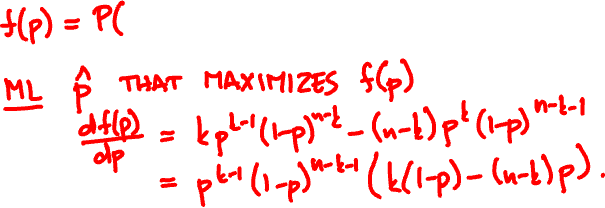 f(p) = P(
ML p̂ THAT MAXIMIZES f(p)
df(p)/dp = k p^{k-1} (1-p)^{n-k} - (n-k) p^k (1-p)^{n-k-1}
= p^{k-1} (1-p)^{n-k-1} (k(1-p) - (n-k)p).